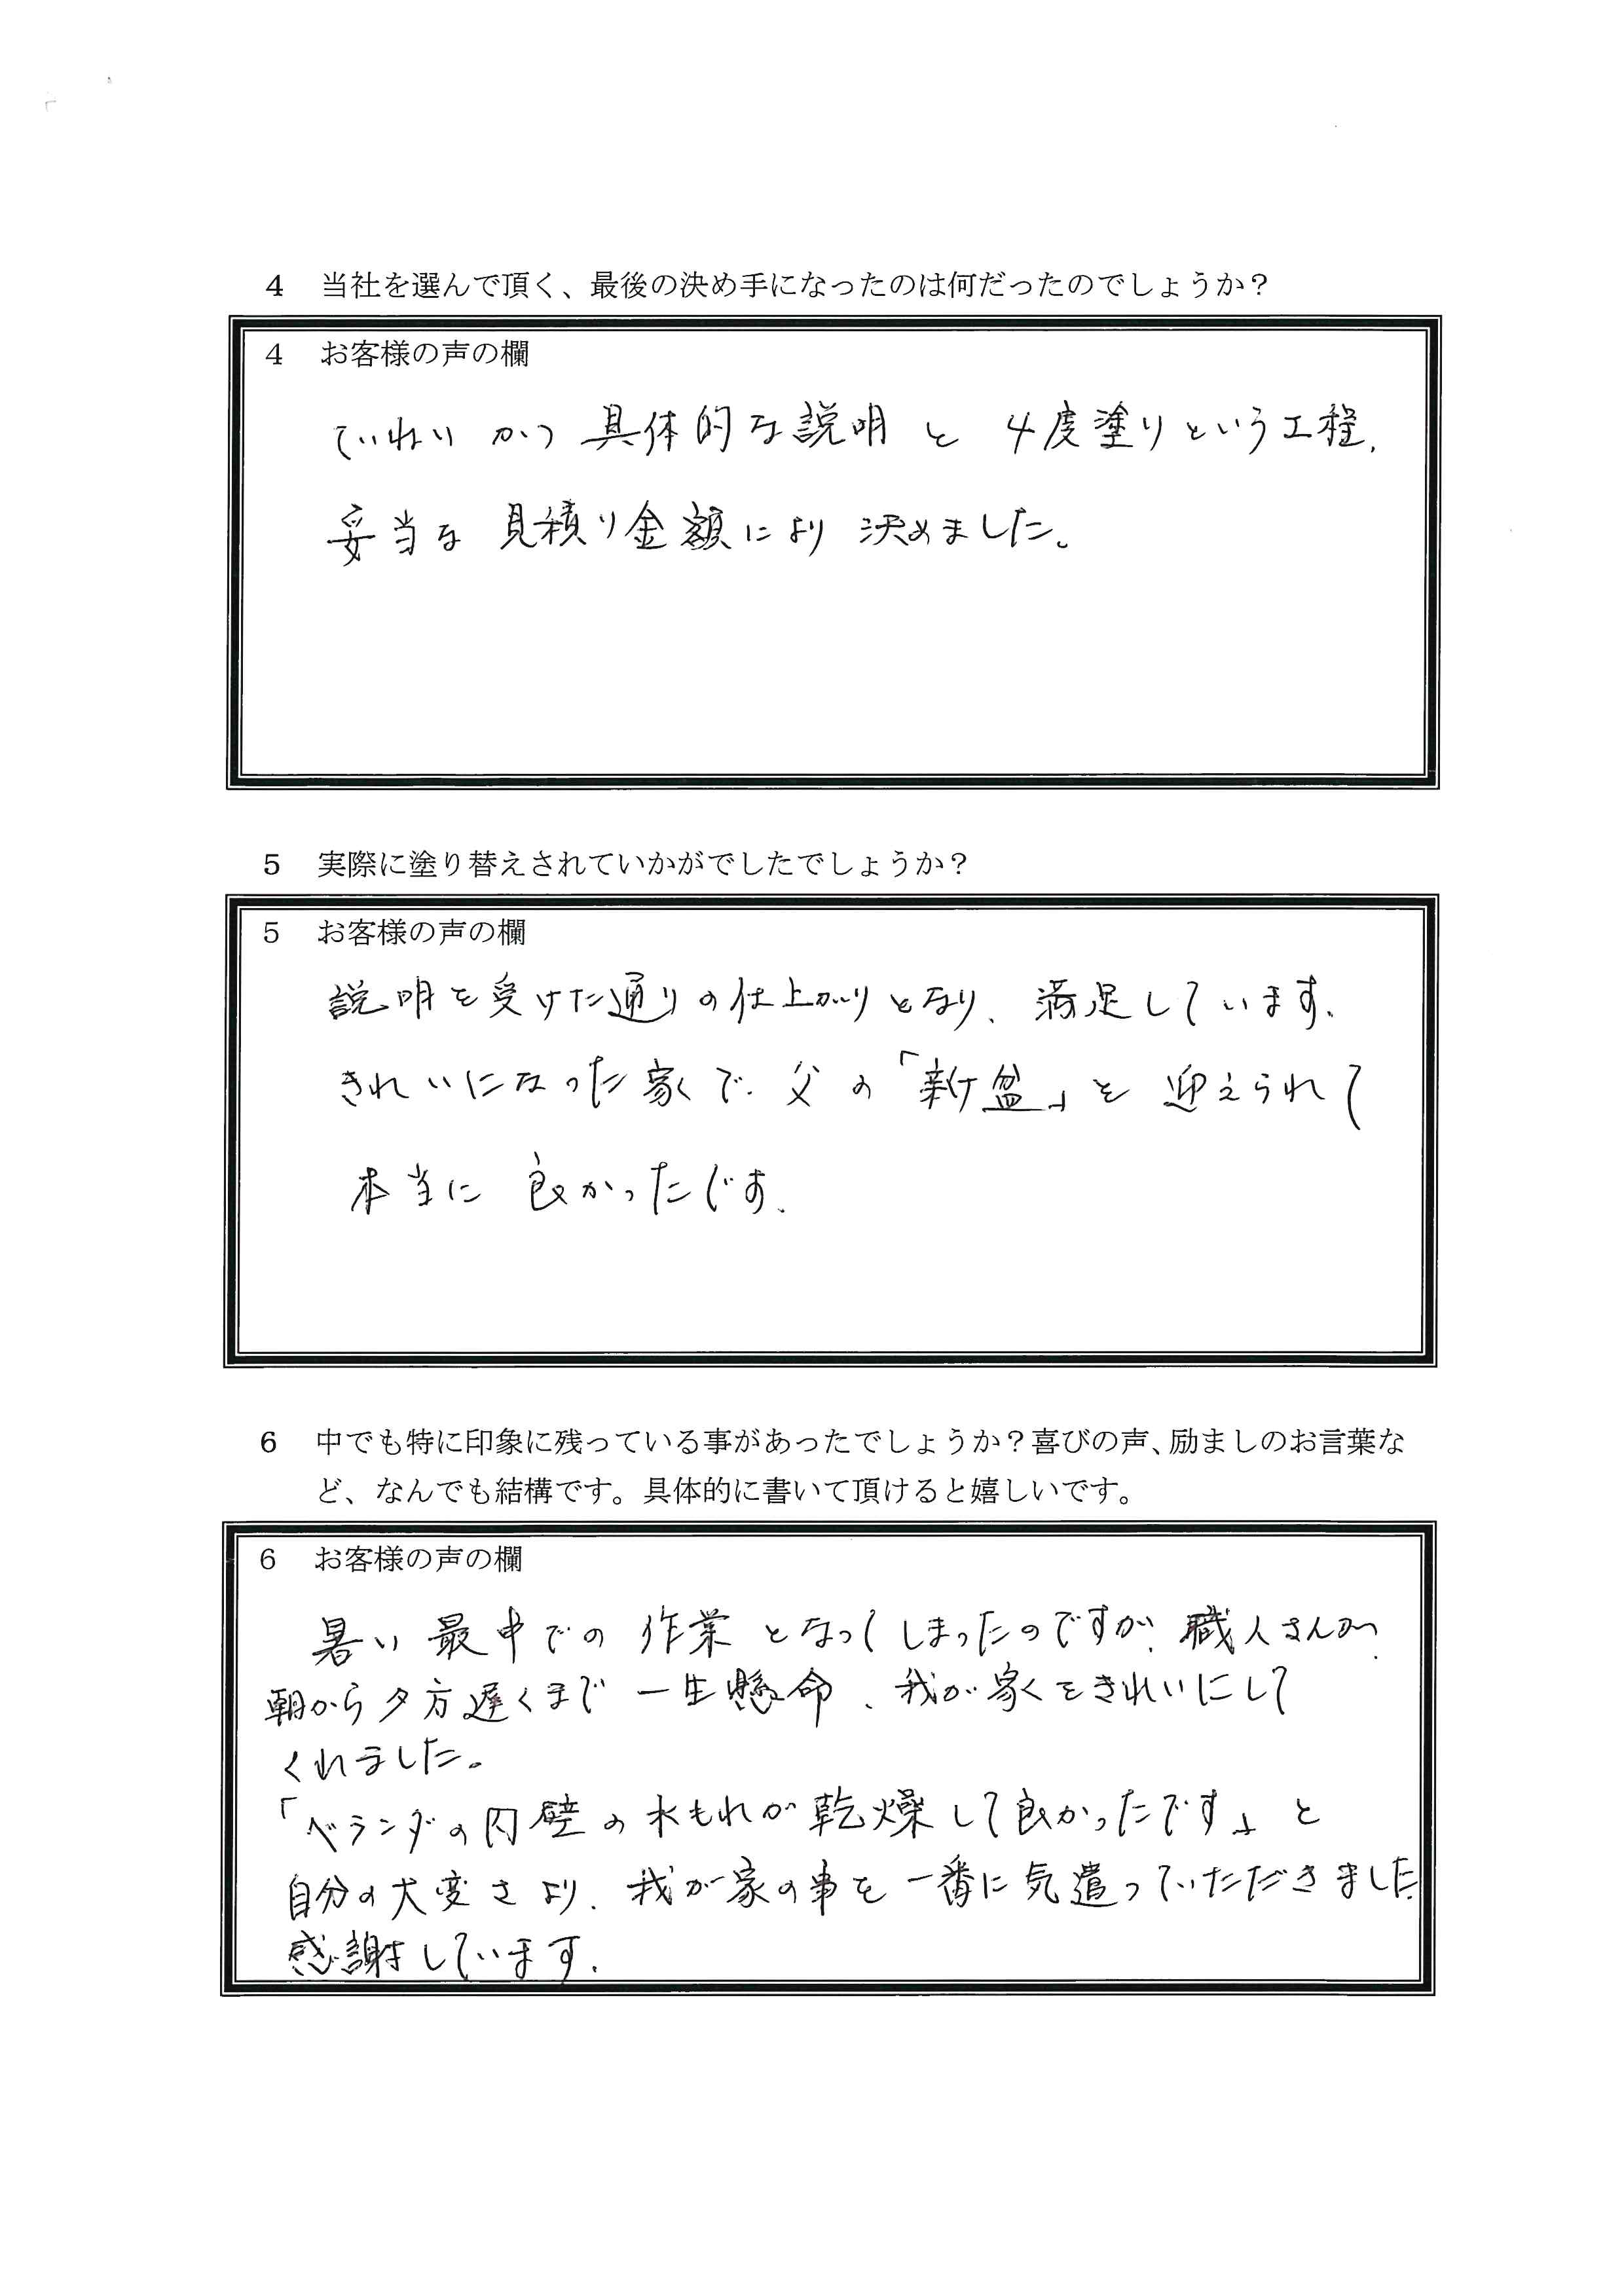 4 当社を選んで頂く、最後の決め手になったのは何だったのでしょうか？
4 お客様の声の欄
ていねいかつ具体的な説明と4度塗りという工程、
妥当な見積り金額により決めました。
5 実際に塗り替えされていかがでしたでしょうか？
5 お客様の声の欄
説明を受けた通りの仕上がりとなり、満足しています。
きれいになった家で、父の「新盆」を迎えられて
本当に良かったです。
6 中でも特に印象に残っている事があったでしょうか？喜びの声、励ましのお言葉な
ど、なんでも結構です。具体的に書いて頂けると嬉しいです。
6 お客様の声の欄
暑い最中での作業となってしまったのですが、職人さんが、
朝から夕方遅くまで一生懸命、我が家をきれいにして
くれました。
「ベランダの内壁の水もれが乾燥して良かったです」と
自分の大変さより、我が家の事を一番に気遣っていただきました
感謝しています。